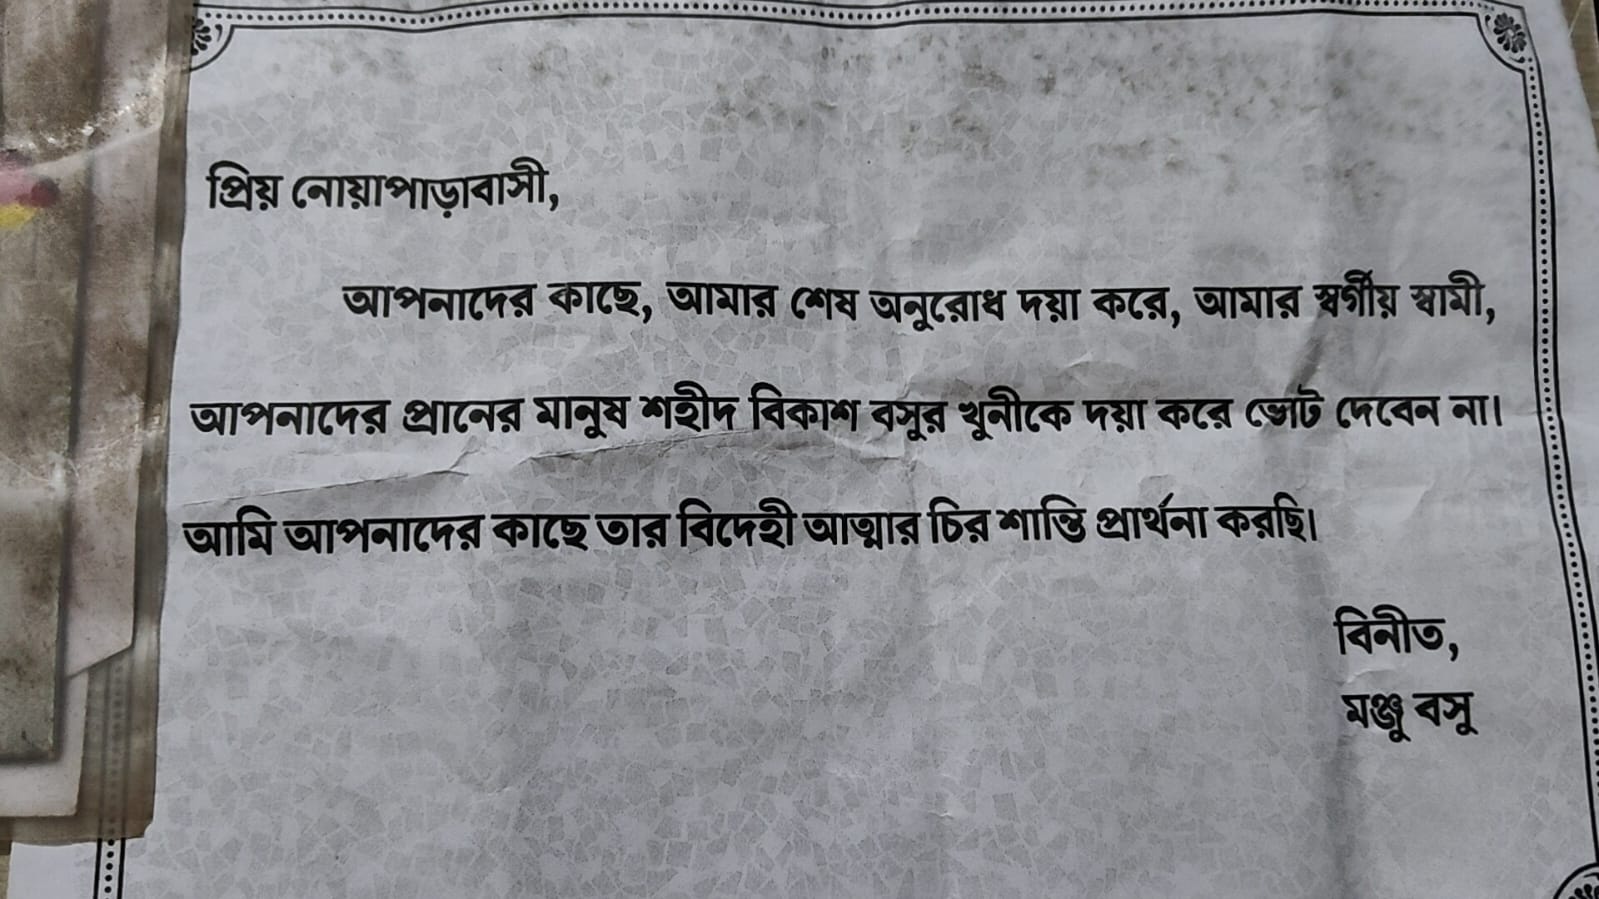 প্রিয় নোয়াপাড়াবাসী,
আপনাদের কাছে, আমার শেষ অনুরোধ দয়া করে, আমার স্বর্গীয় স্বামী,
আপনাদের প্রানের মানুষ শহীদ বিকাশ বসুর খুনীকে দয়া করে ভোট দেবেন না।
আমি আপনাদের কাছে তার বিদেহী আত্মার চির শান্তি প্রার্থনা করছি।
বিনীত,
মঞ্জু বসু